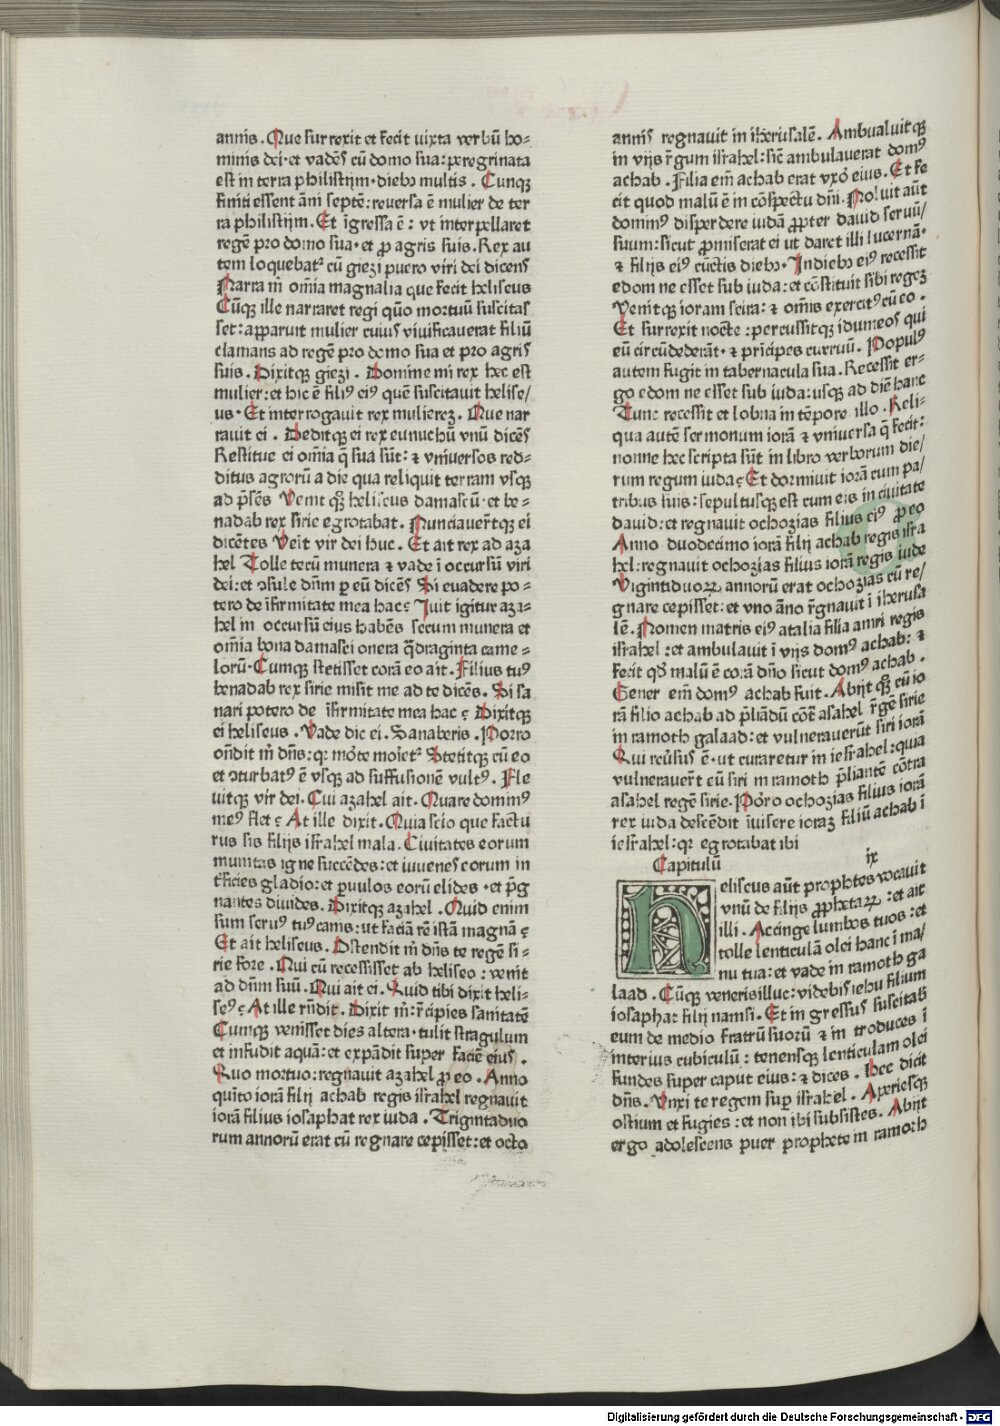 annis. Que surrexit et fecit iuxta verbū ho⸗
minis dei·et vadēs cū domo sua: peregrinata
est in terra philistijm·diebꝰ multis. Cunqꝫ
finiti essent āni septē: reuersa ē mulier de ter
ra philistijm. Et īgressa ē: vt interpellaret
regē pro domo sua·et ꝓ agris suis. Rex au
tem loquebatᷣ cū giezi puero viri dei dicens
Narra m̄ om̄ia magnalia que fecit heliseus
Cūqꝫ ille narraret regi quō mortuū suscitas
set: apparuit mulier cuius viuificauerat filiū
clamans ad regē pro domo sua et pro agris
suis. Dixitqꝫ giezi. Domine mi rex hec est
mulier: et hic ē filiꝰ eiꝰ quē suscitauit helise/
us·Et interrogauit rex mulierez. Que nar
rauit ei. Deditqꝫ ei rex eunuchū vnū dicēs
Restitue ei om̄ia q̄ sua sūt: ⁊ vniuersos red⸗
ditus agrorū a die qua reliquit terram vsqꝫ
ad p̄sēs Venit qꝫ heliseus damascū·et be⸗
nadab rex sirie egrotabat. Nunciauer̄tqꝫ ei
dicētes Veīt vir dei huc. Et ait rex ad aza
hel Tolle tecū munera ⁊ vade ī occursū viri
dei: et ↄsule dn̄m p eū dicēs Si euadere po⸗
tero de īfirmitate mea hac? Iuit igitur aza⸗
hel in occursū eius habēs secum munera et
om̄ia bona damasci onera q̄draginta came⸗
lorū·Cumqꝫ stetisset corā eo ait. Filius tuꝰ
benadab rex sirie misit me ad te dicēs. Si sa
nari potero de īfirmitate mea hac? Dixitqꝫ
ei heliseus. Vade dic ei. Sanaberis. Porro
on̄dit m̄ dn̄s: qꝛ mōte moīetᷣ Stetitqꝫ cū eo
et ↄturbatꝰ ē vsqꝫ ad suffusionē vultꝰ. Fle
uitqꝫ vir dei. Cui azahel ait. Quare dominꝰ
meꝰ flet? At ille dixit. Quia scio que factu
rus sis filijs israhel mala. Ciuitates eorum
munitas igne succēdes: et iuuenes eorum in
tᷣficies gladio: et puulos eorū elides·et p̄g
nantes diuides. Dixitqꝫ azahel. Quid enim
sum seruꝰ tuꝰ canis: ut faciā rē istā magnā?
Et ait heliseus. Ostendit m̄ dn̄s te regē si⸗
rie fore. Qui cū recessisset ab heliseo: venit
ad dn̄m suū. Qui ait ei. Quid tibi dixit heli⸗
seꝰ? At ille rn̄dit. Dixit m̄: r̄cipies sanitatē
Cumqꝫ venisset dies altera·tulit stragulum
et infudit aquā: et expādit super faciē eius.
Quo mortuo: regnauit azahel ꝓ eo. Anno
quīto iorā filij achab regis israhel regnauit
iorā filius iosaphat rex iuda. Trigintaduo
rum annorū erat cū regnare cepisset: et octo
annis regnauit in iherusalē. Ambualuitqꝫ
in vijs r̄gum israhel: sic̄ ambulauerat domꝰ
achab. Filia em̄ achab erat vxor eius. Et fe
cit quod malū ē in cōspectu dn̄i. Noluit aūt
dominꝰ disperdere iudā ꝓpter dauid seruū/
suum: sicut ꝓmiserat ei ut daret illi lucernā·
⁊ filijs eiꝰ cūctis diebꝰ·In diebꝰ eiꝰ recessit
edom ne esset sub iuda: et cōstituit sibi regez
Venitqꝫ ioram seira: ⁊ om̄is exercitꝰ cū eo.
Et surrexit nocte: percussitqꝫ idumeos qui
eū circūdederāt·⁊ prīcipes curruū. Populꝰ
autem fugit in tabernacula sua. Recessit er⸗
go edom ne esset sub iuda: usqꝫ ad diē hanc
Tunc recessit et lobna in tēpore illo. Reli⸗
qua autē sermonum iorā ⁊ vniuersa q̄ fecit:
nonne hec scripta sūt in libro verborum die/
rum regum iuda? Et dormiuit iorā cum pa/
tribus suis: sepultusqꝫ est cum eis in ciuitate
dauid: et regnauit ochozias filius eiꝰ ꝓ eo
Anno duodecimo iorā filij achab regis isra
hel: regnauit ochozias filius iorā regis iude
Vigintiduoꝝ annorū erat ochozias cū re/
gnare cepisset: et vno āno r̄gnauit ī iherusa
lē. Nomen matris eiꝰ atalia filia amri regis
israhel: et ambulauit ī vijs domꝰ achab: ⁊
fecit qd̄ malū ē corā dn̄o sicut domꝰ achab.
Gener em̄ domꝰ achab fuit. Abijt qꝫ cū io
rā filio achab ad p̄liādū cōtᷣ asahel r̄gē sirie
in ramoth galaad: et vulnerauerūt siri iorā
Qui reu̓sus ē·ut curaretur in iesrahel: quia
vulnerauer̄t eū siri in ramoth p̄liantē cōtra
asahel regē sirie. Porro ochozias filius iorā
rex iuda descēdit īuisere ioraz filiū achab ī
iesrahel: qꝛ egrotabat ibi
Capitulū ix
Heliseus aūt prophētes vocauit
vnū de filijs ꝓphetaꝝ: et ait
illi. Accinge lumbos tuos: et
tolle lenticulā olei hanc ī ma/
nu tua: et vade in ramoth ga
laad. Cūqꝫ veneris illuc: videbis iehu filium
iosaphat filij namsi. Et ingressus suscitabis
eum de medio fratrū suorū ⁊ introduces ī
interius cubiculū: tenensqꝫ lenticulam olei
fundes super caput eius: ⁊ dices. Hec dicit
dn̄s. Vnxi te regem sup israhel. Aperiesqꝫ
ostium et fugies: et non ibi subsistes. Abijt
ergo adolescens puer prophete in ramoth
Digitalisierung gefördert durch die Deutsche Forschungsgemeinschaft - DFG